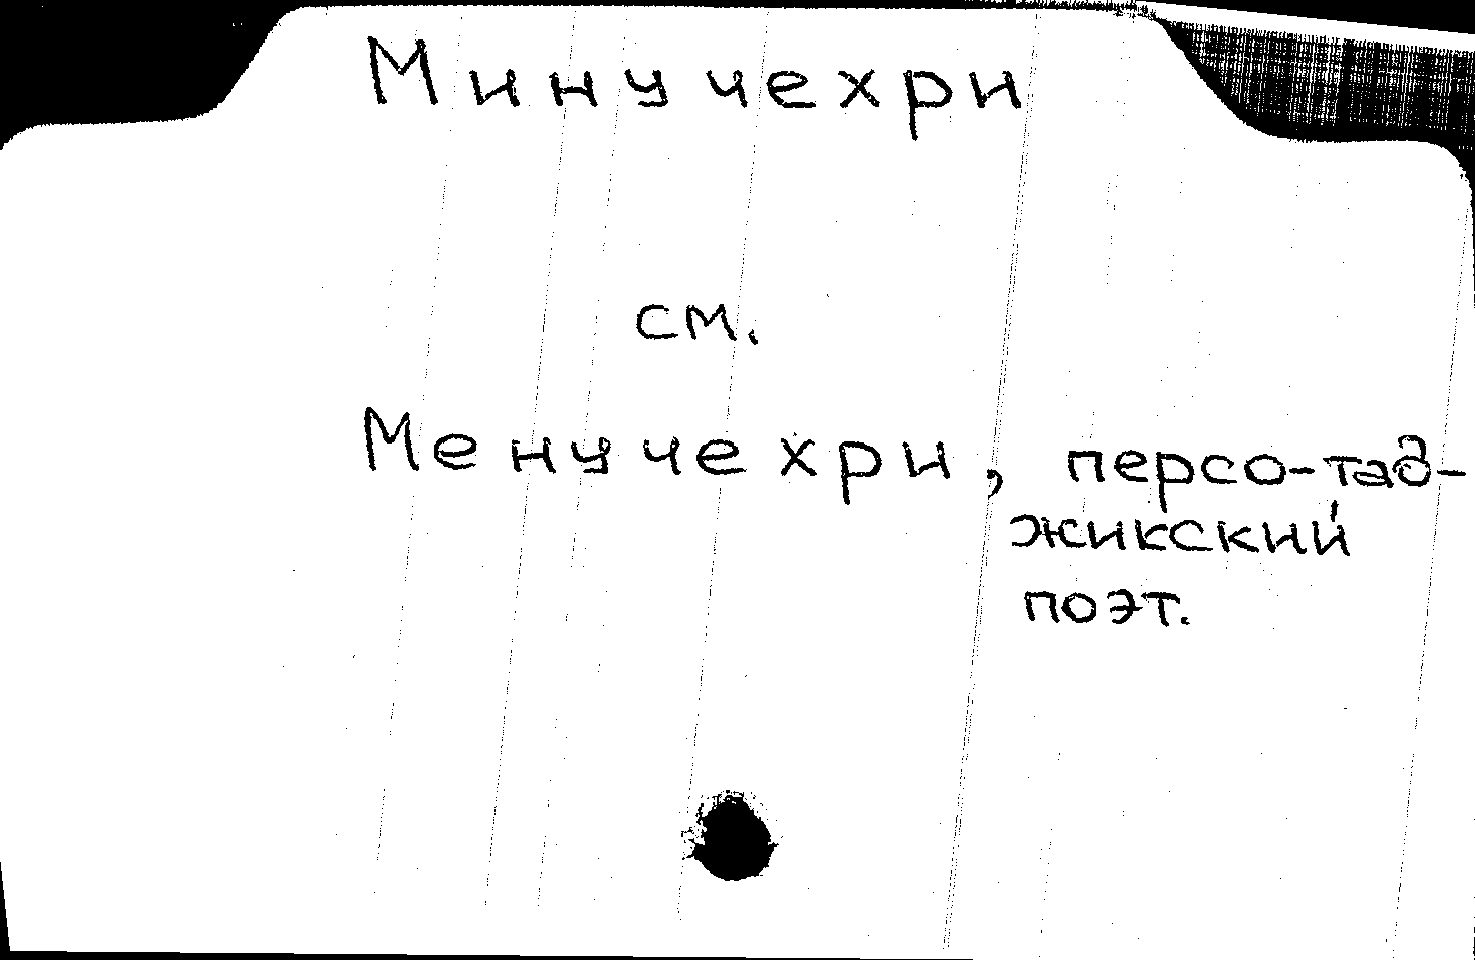 Минучехри
см.
Менучехри, персо-тад-
жикский
поэт.